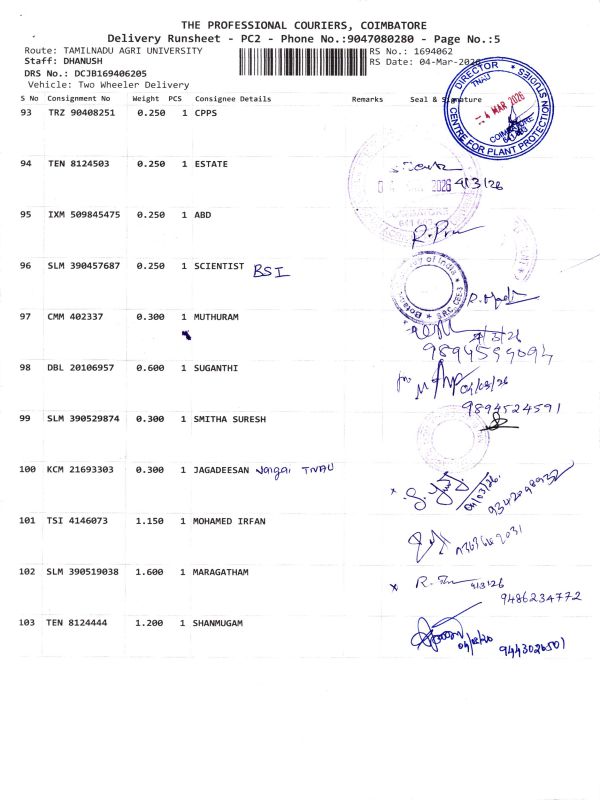 THE PROFESSIONAL COURIERS, COIMBATORE
Delivery Runsheet - PC2 - Phone No.:9047080280 - Page No.:5
Route: TAMILNADU AGRI UNIVERSITY RS No.: 1694062
Staff: DHANUSH RS Date: 04-Mar-2026
DRS No.: DCJB169406205
Vehicle: Two Wheeler Delivery
DIRECTOR
TNAU
4 MAR 2026
COIMBATORE
641 003
CENTRE FOR PLANT PROTECTION STUDIES
S No Consignment No Weight PCS Consignee Details Remarks Seal & Signature
93 TRZ 90408251 0.250 1 CPPS
94 TEN 8124503 0.250 1 ESTATE
2026 4/3/26
95 IXM 509845475 0.250 1 ABD
96 SLM 390457687 0.250 1 SCIENTIST BSI
97 CMM 402337 0.300 1 MUTHURAM
4/3/26
9894599094
98 DBL 20106957 0.600 1 SUGANTHI
04/03/26
9894524591
99 SLM 390529874 0.300 1 SMITHA SURESH
100 KCM 21693303 0.300 1 JAGADEESAN TNAU
04/03/26
9342098932
101 TSI 4146073 1.150 1 MOHAMED IRFAN
102 SLM 390519038 1.600 1 MARAGATHAM
4/3/26
9486234772
103 TEN 8124444 1.200 1 SHANMUGAM
9443026501